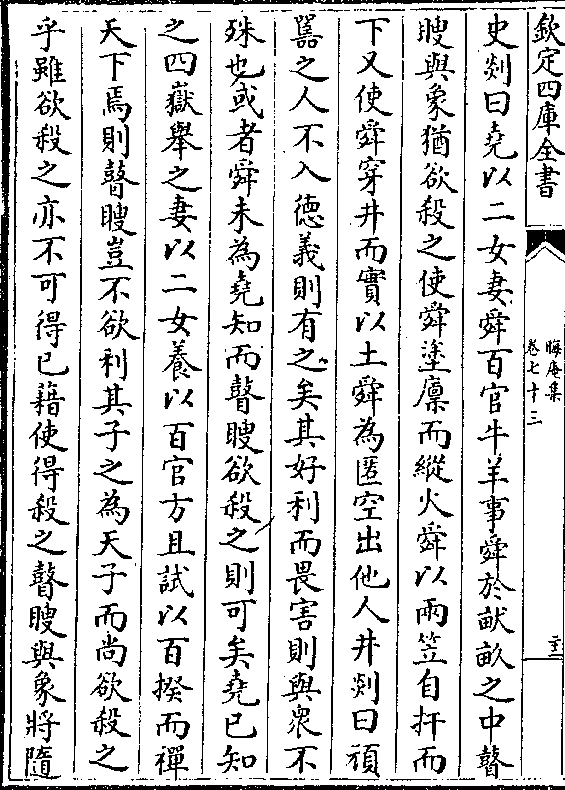 欽定四庫全書
晦庵集
卷七十三
史剡曰堯以二女妻舜百官牛羊事舜於畎畝之中瞽
瞍與象猶欲殺之使舜塗廩而縱火舜以兩笠自扞而
下又使舜穿井而實以土舜為匿空出他人井剡曰頑
嚚之人不入德義則有之矣其好利而畏害則與衆不
殊也或者舜未為堯知而瞽瞍欲殺之則可矣堯已知
之四嶽舉之妻以二女養以百官方且試以百揆而禪
天下焉則瞽瞍豈不欲利其子之為天子而尚欲殺之
乎雖欲殺之亦不可得已藉使得殺之瞽瞍與象將隨